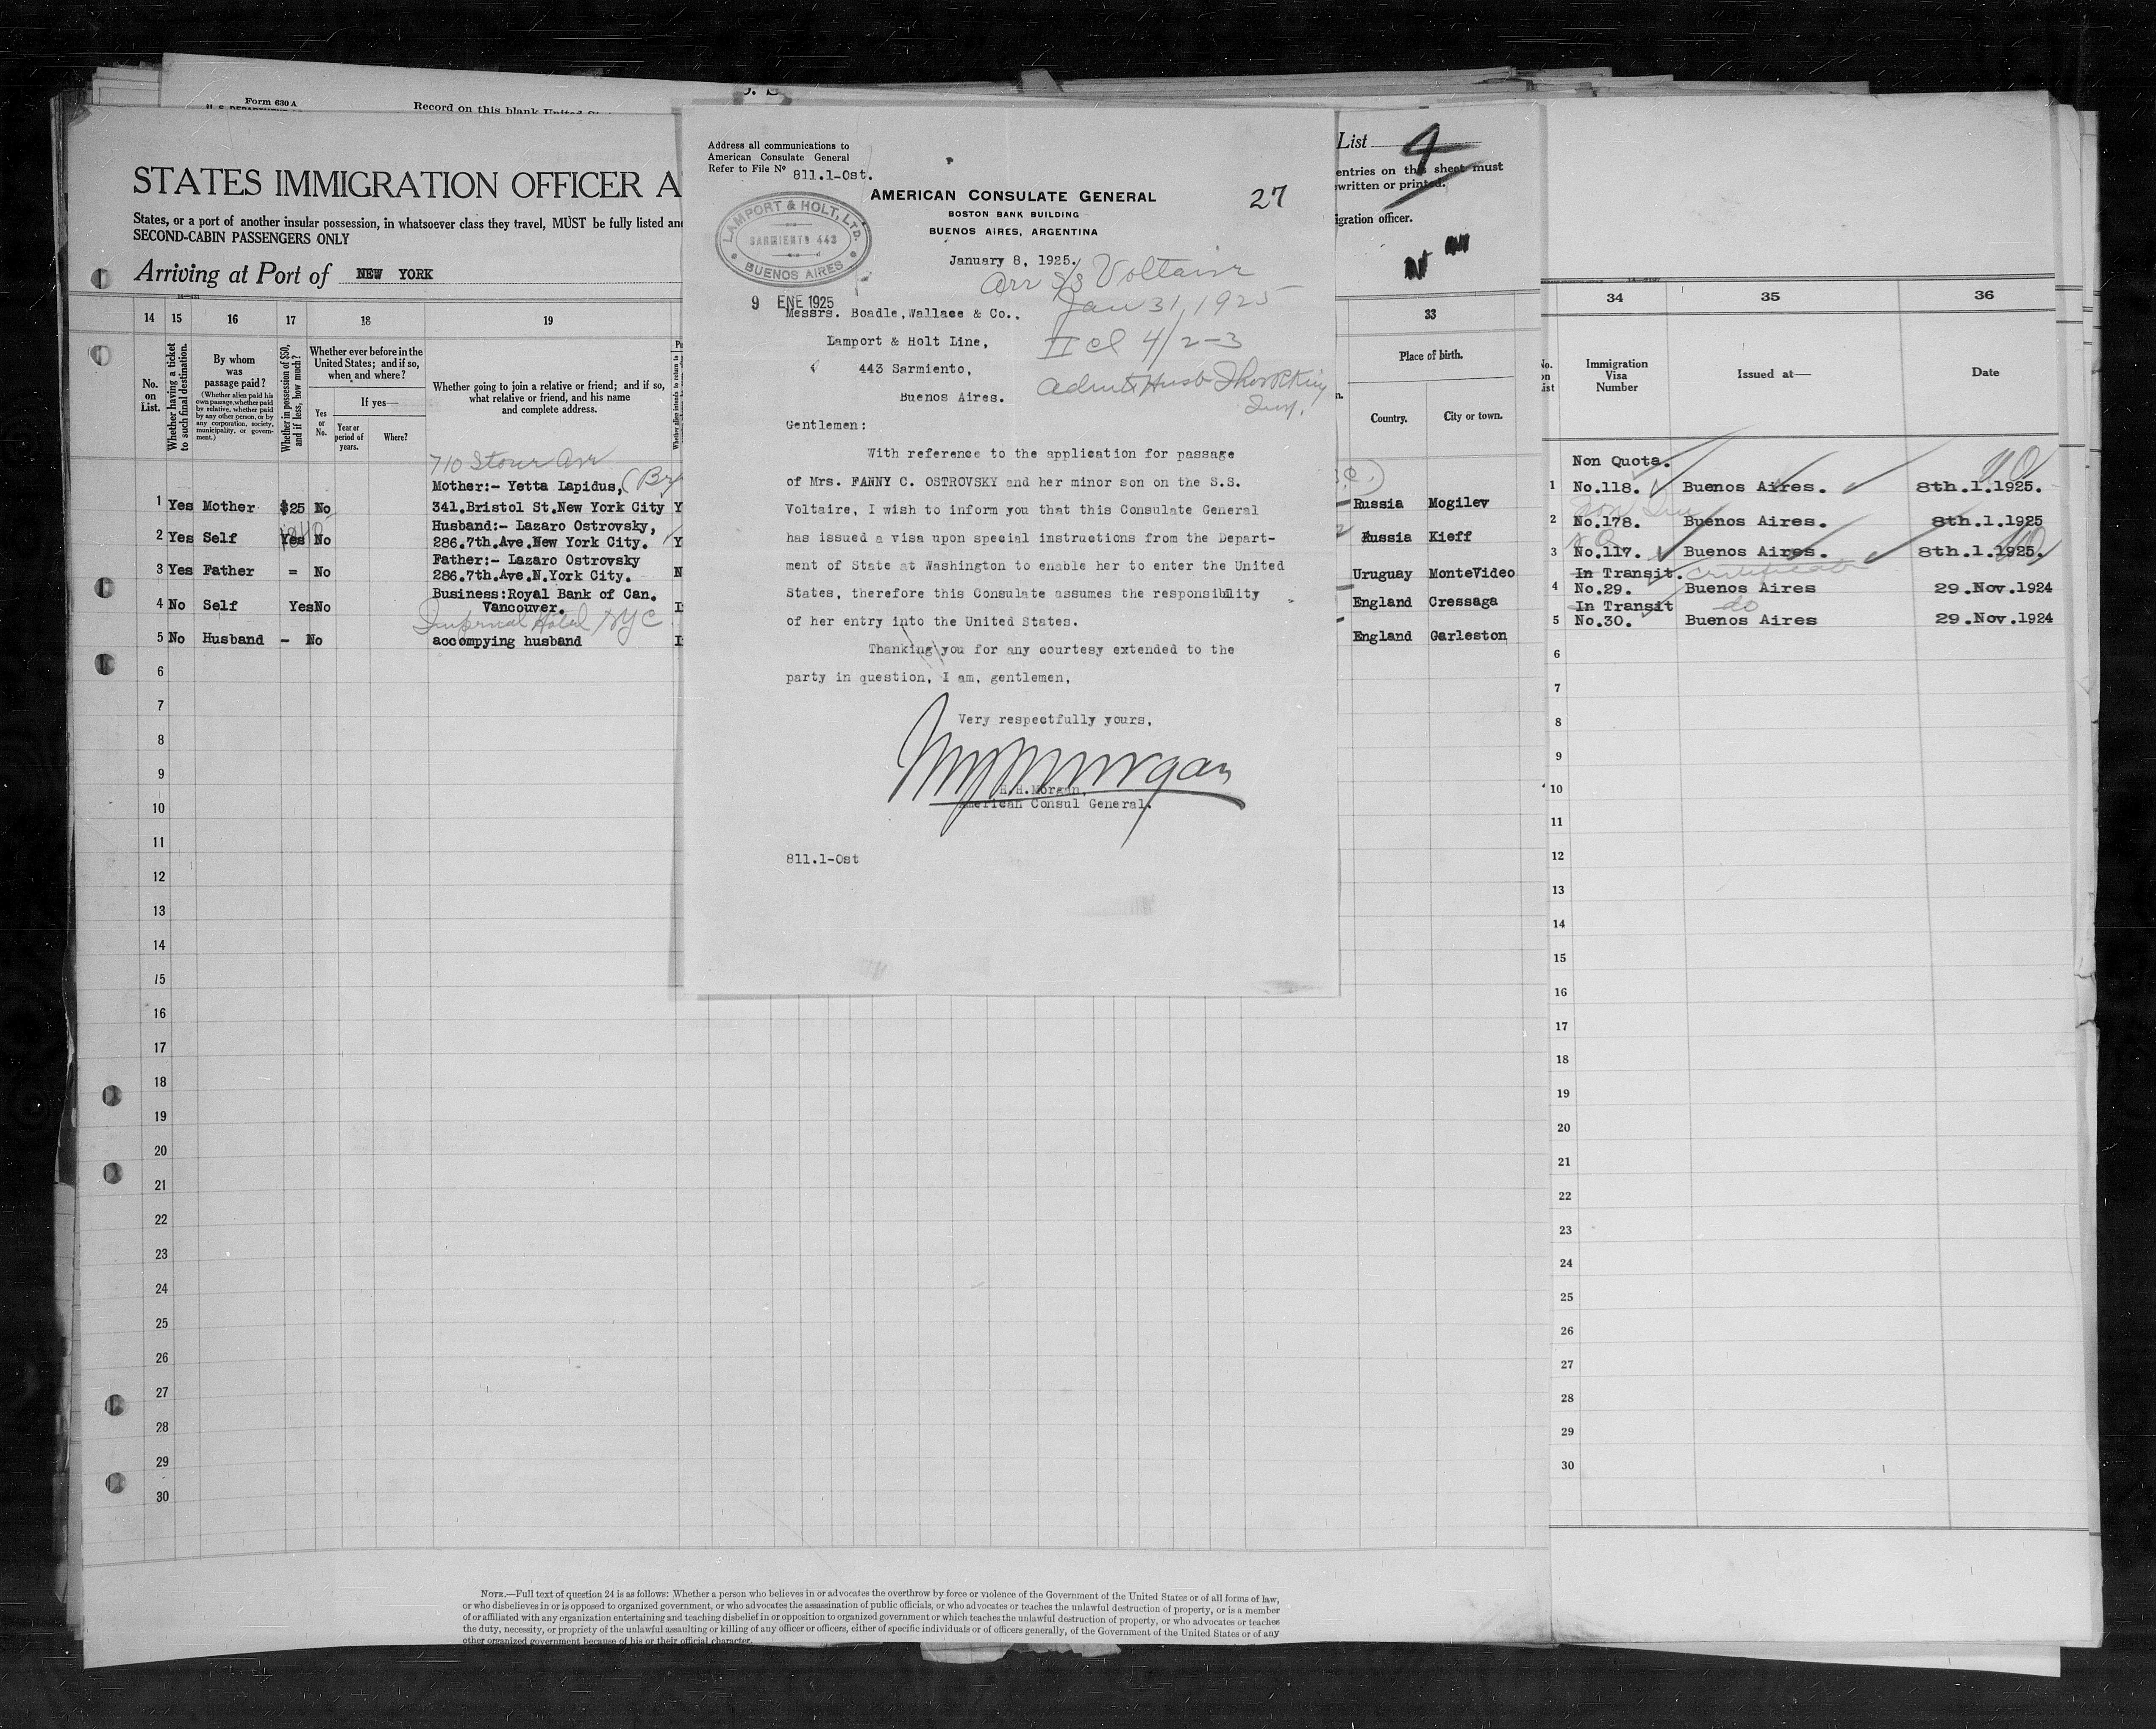 Form 630 A
Record on this blank United
STATES IMMIGRATION OFFICER A
States, or a port of another insular possession, in whatsoever class they travel, MUST be fully listed and
SECOND-CABIN PASSENGERS ONLY
Arriving at Port of NEW YORK
14 15 16 17 18 19
No. on List.
Whether having a ticket to such final destination.
By whom was passage paid?
(Whether alien paid his own passage, whether paid by relative, whether paid by any other person, or by any corporation, society, municipality, or government.)
Whether in possession of $50, and if less, how much?
Whether ever before in the United States; and if so, when and where?
Yes or No.
If yes—
Year or period of years.
Where?
Whether going to join a relative or friend; and if so, what relative or friend, and his name and complete address.
Mother:- Yetta Lapidus,
1 Yes Mother $25 No 341.Bristol St.New York City Y
Husband:- Lazaro Ostrovsky,
2 Yes Self Yes No 286.7th.Ave.New York City. Y
Father:- Lazaro Ostrovsky
3 Yes Father = No 286.7th.Ave.N.York City. N
Business:Royal Bank of Can.
4 No Self Yes No Vancouver.
Imperial Hotel NYC
5 No Husband - No accompying husband
6
7
8
9
10
11
12
13
14
15
16
17
18
19
20
21
22
23
24
25
26
27
28
29
30
Address all communications to
American Consulate General
Refer to File No 811.1-Ost.
AMERICAN CONSULATE GENERAL
BOSTON BANK BUILDING
BUENOS AIRES, ARGENTINA
27
LAMPORT & HOLT, LTD.
SARMIENTO 443
BUENOS AIRES
January 8, 1925.
Arr S/S Voltaire
9 ENE 1925
Jan 31, 1925
Messrs. Boadle,Wallace & Co.,
Lamport & Holt Line,
II cl 4/2-3
443 Sarmiento,
Buenos Aires.
Gentlemen:
With reference to the application for passage
of Mrs. FANNY C. OSTROVSKY and her minor son on the S.S.
Voltaire, I wish to inform you that this Consulate General
has issued a visa upon special instructions from the Depart-
ment of State at Washington to enable her to enter the United
States, therefore this Consulate assumes the responsibility
of her entry into the United States.
Thanking you for any courtesy extended to the
party in question, I am, gentlemen,
Very respectfully yours,
H.H.Morgan,
American Consul General.
811.1-Ost
List 4
entries on this sheet must
written or printed.
igration officer.
33
Place of birth.
Country. City or town.
Russia Mogilev
Russia Kieff
Uruguay MonteVideo
England Cressaga
England Garleston
34 35 36
Immigration Visa Number
Issued at—
Date
Non Quota.
1 No.118. Buenos Aires. 8th.1.1925.
2 No.178. Buenos Aires. 8th.1.1925
3 No.117. Buenos Aires. 8th.1.1925.
In Transit. certificate
4 No.29. Buenos Aires 29.Nov.1924
In Transit do
5 No.30. Buenos Aires 29.Nov.1924
6
7
8
9
10
11
12
13
14
15
16
17
18
19
20
21
22
23
24
25
26
27
28
29
30
NOTE.—Full text of question 24 is as follows: Whether a person who believes in or advocates the overthrow by force or violence of the Government of the United States or of all forms of law,
or who disbelieves in or is opposed to organized government, or who advocates the assassination of public officials, or who advocates or teaches the unlawful destruction of property, or is a member
of or affiliated with any organization entertaining and teaching disbelief in or opposition to organized government or which teaches the unlawful destruction of property, or who advocates or teaches
the duty, necessity, or propriety of the unlawful assaulting or killing of any officer or officers, either of specific individuals or of officers generally, of the Government of the United States or of any
other organized government because of his or their official character.